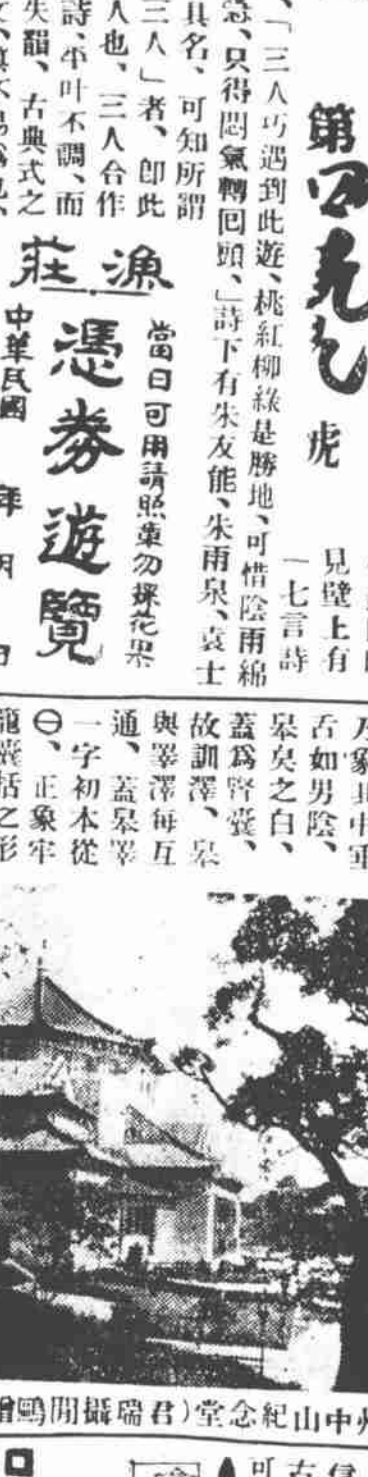 第四
虎
見壁上有
一七言詩
、「三人巧遇到此遊、桃紅柳綠是勝地、可惜陰雨綿
只得悶氣轉回頭、」詩下有朱友能、朱雨泉、袁士
其名、可知所謂
三人」者、卽此
人也、三人合作
詩、平叶不調、而
失韻、古典式之
漁莊
當日可用請照章勿採花果
憑券遊覽
中華民國 年 月 日
舌如男陰、
皋矣之白、
蓋爲腎囊、
故訓澤、皋
與睪澤每互
通、蓋皋睪
一字初本從
㊀、正象牢
籠囊括之形
州中山紀念堂(君瑞攝閒鷗贈